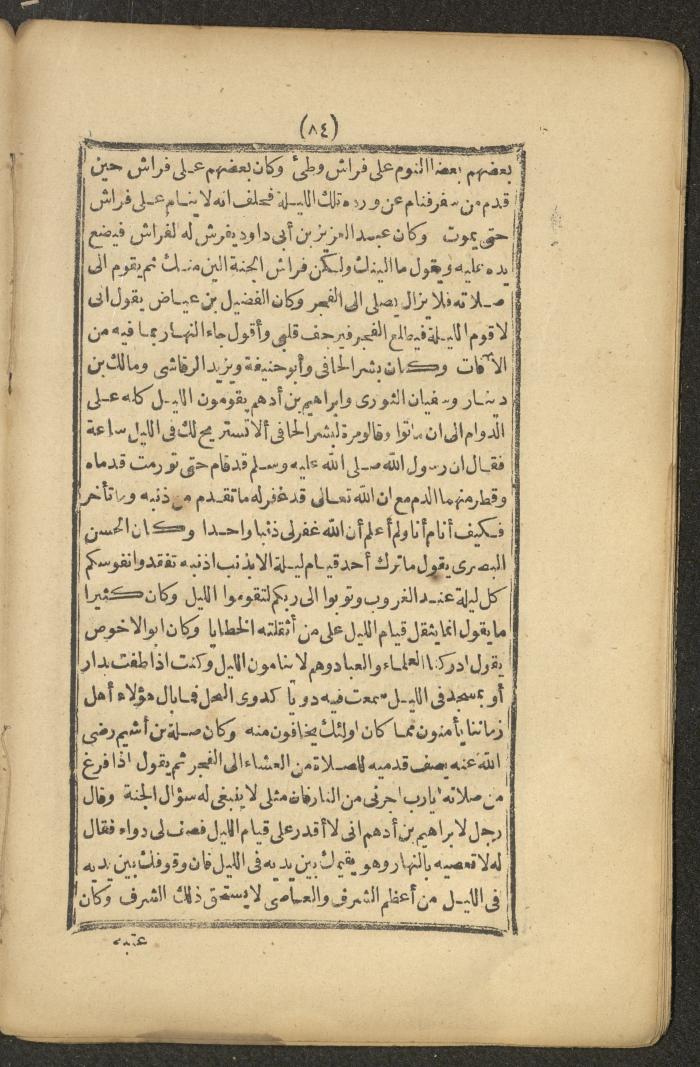 (٨٤)
بعضهم بعضا النوم على فراش وطئ وكان بعضهم على فراش حين
قدم من سفر فنام عن ورده تلك الليلة فحلف انه لا ينام على فراش
حتى يموت وكان عبد العزيز بن أبى داود يفرش له لفراش فيضع
يده عليه ويقول ما ألينك ولكن فراش الجنة الين منك ثم يقوم الى
صلاته فلا يزال يصلى الى الفجر وكان الفضيل بن عياض يقول انى
لا قوم الليلة فيطلع الفجر فيرجف قلبى وأقول جاء النهار بما فيه من
الآفات وكان بشر الحافى وأبو حنيفة ويزيد الرقاشى ومالك بن
دينار وسفيان الثورى وابراهيم بن أدهم يقومون الليل كله على
الدوام الى ان ماتوا وقالو مرة لبشر الحافى ألا تستريح لك فى الليل ساعة
فقال ان رسول الله صلى الله عليه وسلم قد قام حتى تورمت قدماه
وقطر منهما الدم مع ان الله تعالى قد غفر له ما تقدم من ذنبه وما تأخر
فكيف أنام أنا ولم أعلم أن الله غفر لى ذنبا واحدا وكان الحسن
البصرى يقول ما ترك أحد قيام ليلة الا بذنب اذنبه تفقدوا نفوسكم
كل ليلة عند الغروب وتوبوا الى ربكم لتقوموا الليل وكان كثيرا
ما يقول انما يثقل قيام الليل على من أثقلته الخطايا وكان ابو الاخوص
يقول ادركنا العلماء والعباد وهم لا ينامون الليل وكنت اذا طفت بدار
أو بمسجد فى الليل سمعت فيه دويا كدوى النحل فما بال هؤلاء أهل
زماننا يأمنون مما كان اولئك يخافون منه وكان صلة بن أشيم رضى
الله عنه يصف قدميه للصلاة من العشاء الى الفجر ثم يقول اذا فرغ
من صلاته يارب اجرنى من النار فان مثلى لا ينبغى له سؤال الجنة وقال
رجل لابراهيم بن أدهم انى لا أقدر على قيام الليل فصف لى دواء فقال
له لا تعصيه بالنهار وهو يقيمك بين يديه فى الليل فان وقوفك بين يديه
فى الليل من أعظم الشرف والعاصى لا يستحق ذلك الشرف وكان
عتبه